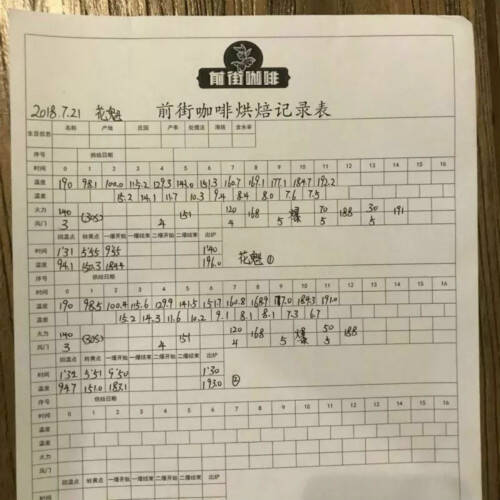 前街咖啡
2018.7.21 花魁 前街咖啡烘焙记录表
生豆信息 名称 产地 庄园 产季 处理法 海拔 含水率
序号 烘焙日期
时间 0 1 2 3 4 5 6 7 8 9 10 11 12 13 14 15 16
温度 190 98.1 100.0 115.2 129.3 143.0 151.3 160.7 169.1 177.1 184.7 192.2
温度 15.2 14.1 13.7 10.3 9.4 8.4 8.0 7.6 7.5
火力 140 (30S) 151 120 168 爆 70 188 30 191
风门 3 4 4 5 5 5
回温点 转黄点 一爆开始 一爆结束 二爆开始 二爆结束 出炉
时间 1'31 5'45 9'35 1'40
温度 94.1 150.3 184.4 196.0 花魁①
序号 烘焙日期
时间 0 1 2 3 4 5 6 7 8 9 10 11 12 13 14 15 16
温度 190 98.5 100.4 115.6 129.9 141.5 151.7 160.8 168.9 177.0 184.3 191.0
温度 15.2 14.3 11.6 10.2 9.1 8.1 8.1 7.3 6.7
火力 140 (30S) 151 120 168 爆 50 188
风门 3 4 4 5 5
回温点 转黄点 一爆开始 一爆结束 二爆开始 二爆结束 出炉
时间 1'32 5'51 9'50 1'30
温度 94.7 151.0 183.1 193.0 ②
序号 烘焙日期
时间 0 1 2 3 4 5 6 7 8 9 10 11 12 13 14 15 16
温度
温度
火力
风门
回温点 转黄点 一爆开始 一爆结束 二爆开始 二爆结束 出炉
时间
温度